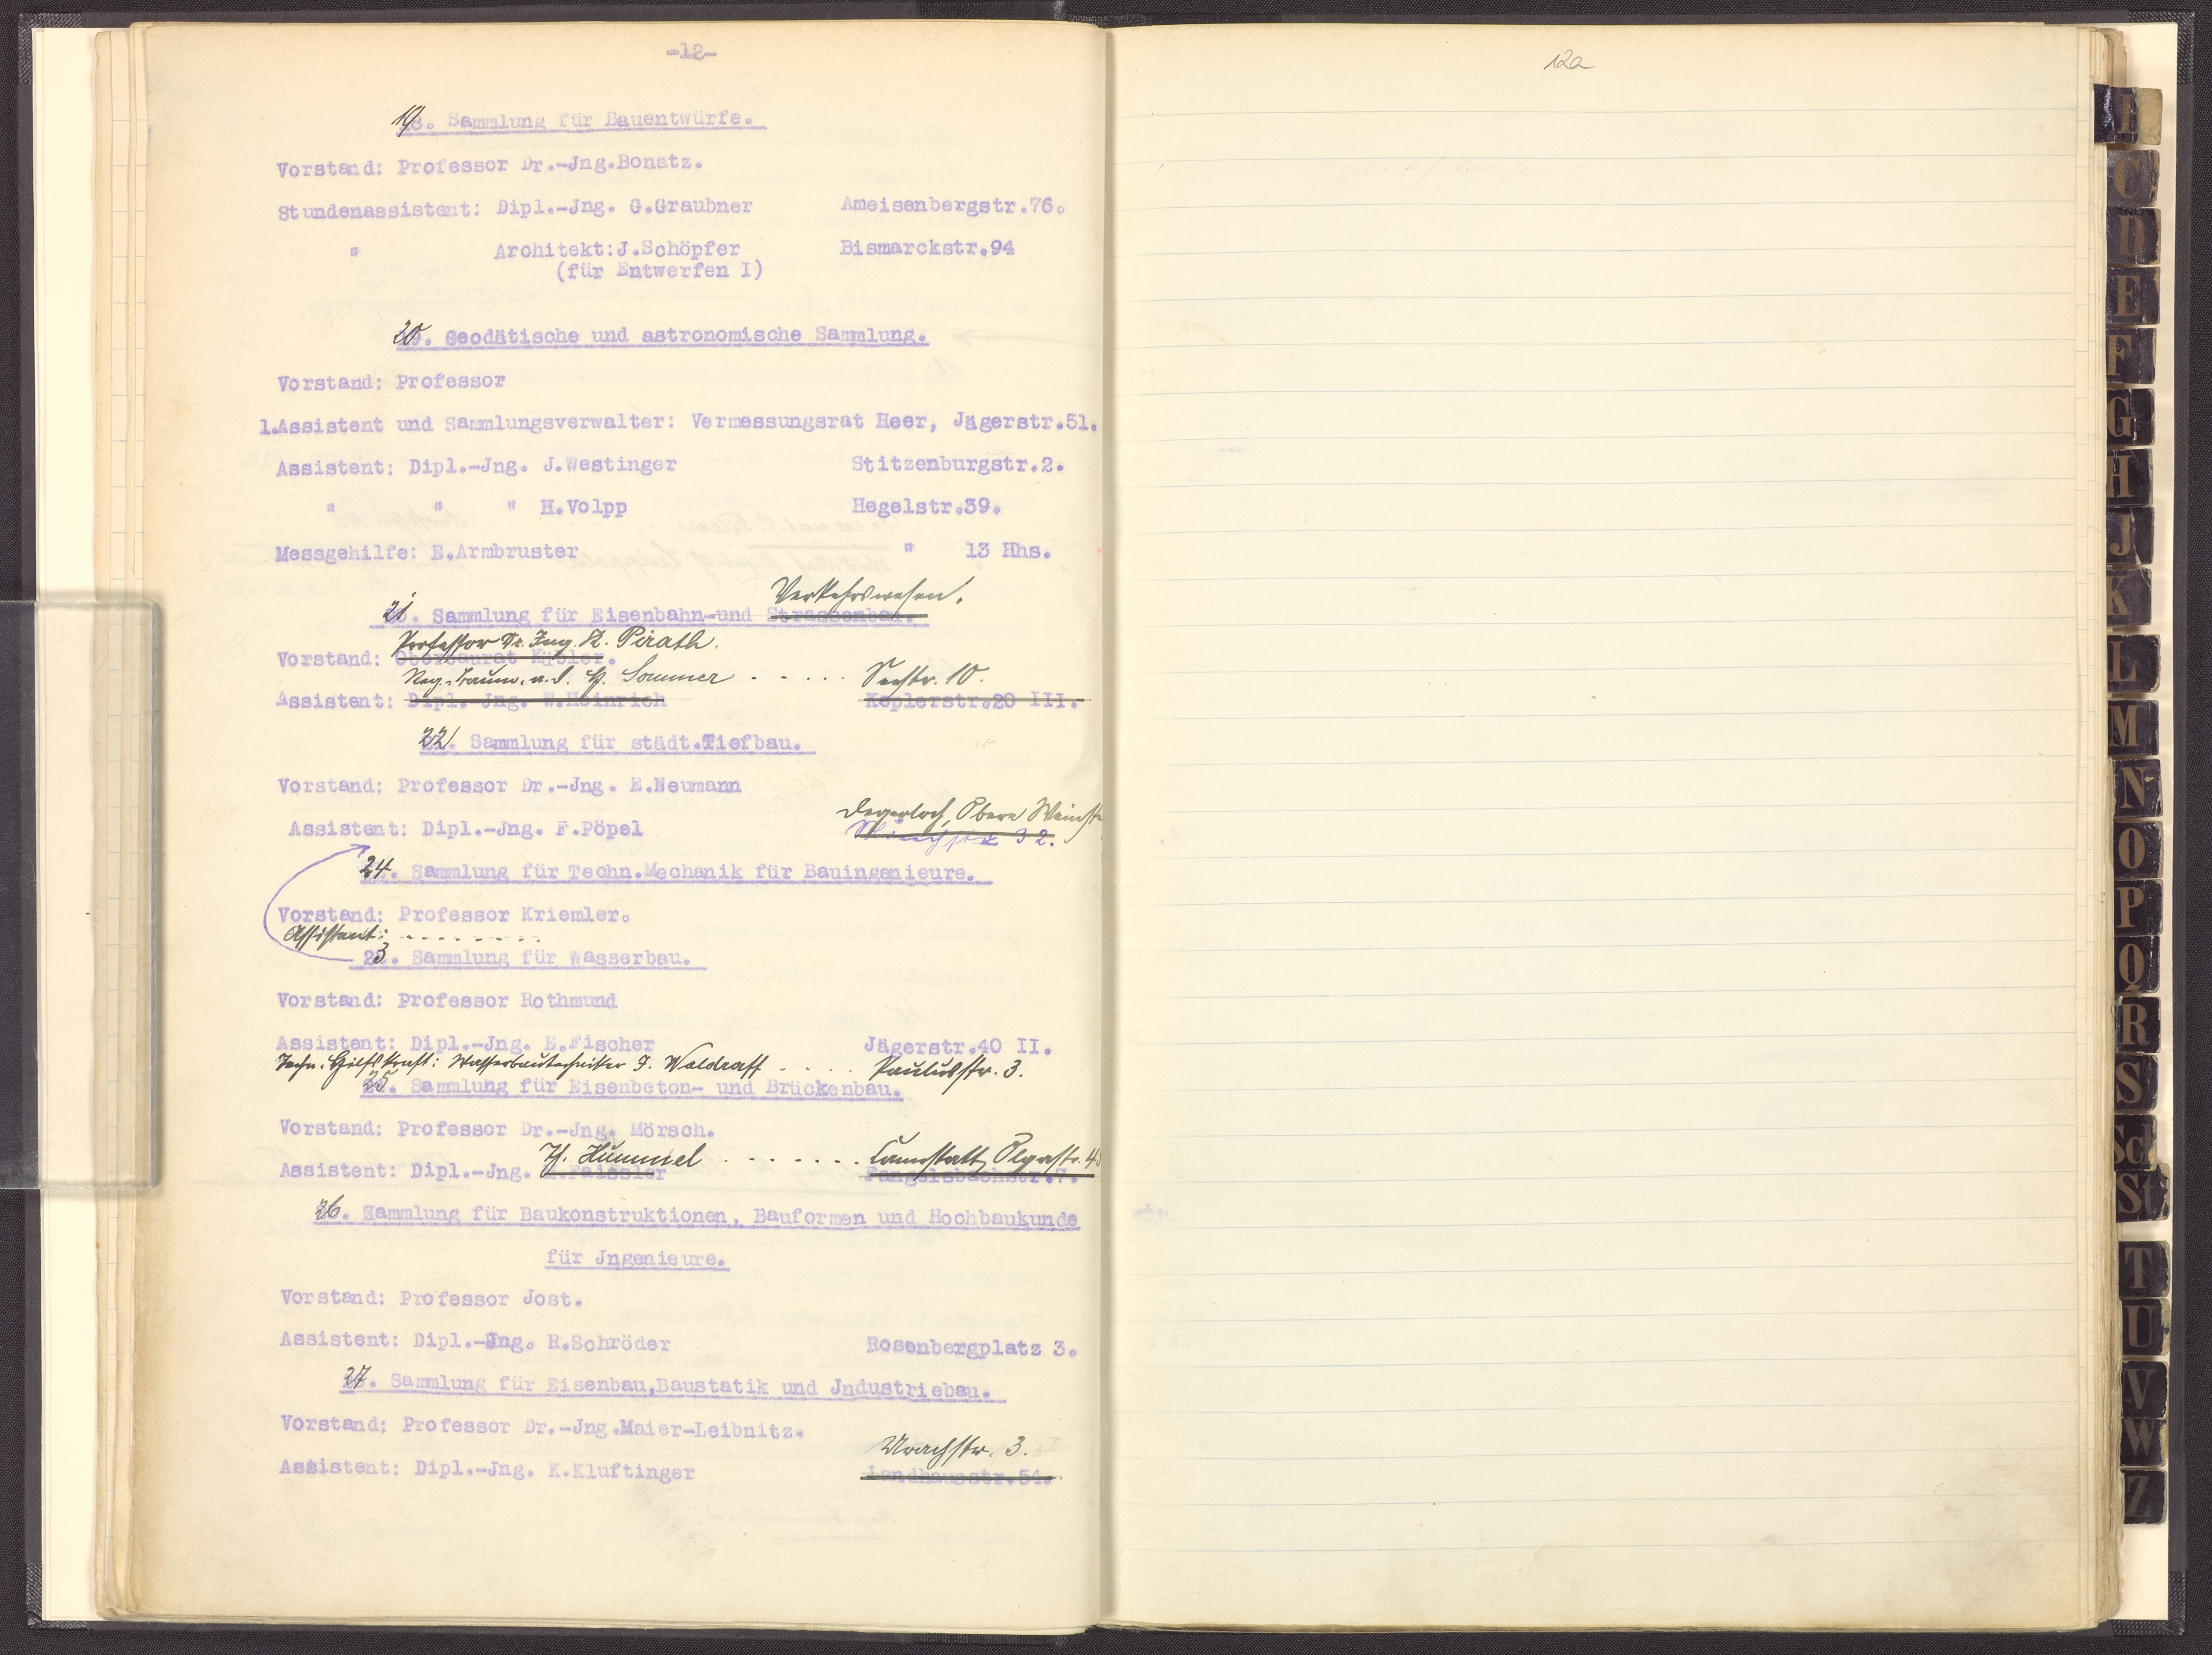 -12-
19. Sammlung für Bauentwürfe.
Vorstand: Professor Dr.-Jng.Bonatz.
Stundenassistent: Dipl.-Jng. G.Graubner Ameisenbergstr.76.
" Architekt:J.Schöpfer Bismarckstr.94
(für Entwerfen I)
20. Geodätische und astronomische Sammlung.
Vorstand: Professor
1.Assistent und Sammlungsverwalter: Vermessungsrat Heer, Jägerstr.51.
Assistent: Dipl.-Jng. J.Westinger Stitzenburgstr.2.
" " " H.Volpp Hegelstr.39.
Messgehilfe: E.Armbruster " 13 Hhs.
Verkehrswesen.
21. Sammlung für Eisenbahn-und Strassenbau.
Professor Dr. Ing. K. Pirath.
Vorstand: Oberbaurat Kübler.
Reg.-Baum. a.D. H. Sommer - - - - - Seestr. 10.
Assistent: Dipl.-Jng. W.Heinrich Keplerstr.20 III.
22. Sammlung für städt.Tiefbau.
Vorstand: Professor Dr.-Jng. E.Neumann
Degerloch, Obere Weinste
Assistent: Dipl.-Jng. F.Pöpel 32.
24. Sammlung für Techn.Mechanik für Bauingenieure.
Vorstand: Professor Kriemler.
Assistent: - - - - - - - -
23. Sammlung für Wasserbau.
Vorstand: Professor Rothmund
Assistent: Dipl.-Jng. E.Fischer Jägerstr.40 II.
Techn. Hilfskraft: Wasserbautechniker J. Waldraff - - - - Paulusstr. 3.
25. Sammlung für Eisenbeton- und Brückenbau.
Vorstand: Professor Dr.-Jng. Mörsch.
Th. Hummel - - - - - - - Cannstatt, Olgastr. 4
Assistent: Dipl.-Jng. E.Faissler Fangelsbachstr.7.
26. Sammlung für Baukonstruktionen, Bauformen und Hochbaukunde
für Jngenieure.
Vorstand: Professor Jost.
Assistent: Dipl.-Jng. R.Schröder Rosenbergplatz 3.
27. Sammlung für Eisenbau,Baustatik und Jndustriebau.
Vorstand: Professor Dr.-Jng.Maier-Leibnitz.
Urachstr. 3.
Assistent: Dipl.-Jng. K.Kluftinger Landhausstr.51.
12a
C
D
E
F
G
H
J
K
L
M
N
O
P
Q
R
S
Sch
St
T
U
V
W
Z